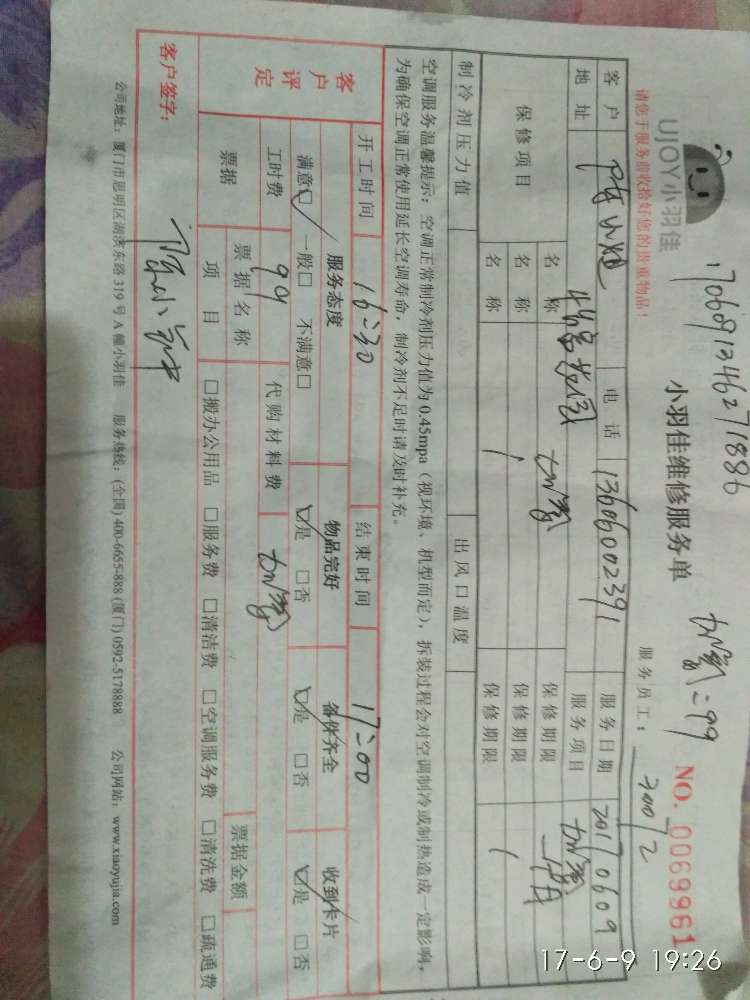 1706091346271886
加氟=99
UJOY小羽佳
小羽佳维修服务单
NO. 0069961
请您于服务前收拾好您的贵重物品！
服务员工：
客户 电话 13606002391 服务日期 20170609
地址 服务项目 加氟
保修项目 名称 加氟 保修期限 一个月
名称 保修期限
名称 保修期限
制冷剂压力值 出风口温度
空调服务温馨提示：空调正常制冷剂压力值为0.45mpa（视环境、机型而定），拆装过程会对空调制冷或制热造成一定影响，
为确保空调正常使用延长空调寿命，制冷剂不足时请及时补充。
开工时间 16:30 结束时间 17:00
客户评定 服务态度 物品完好 备件齐全 收到卡片
满意☑ 一般□ 不满意□ ☑是 □否 ☑是 □否 ☑是 □否
工时费 99 代购材料费 加氟
票据 票据名称 票据金额
项目 □搬办公用品 □服务费 □清洁费 □空调服务费 □清洗费 □疏通费
客户签字：
公司地址：厦门市思明区湖滨东路319号A幢小羽佳 服务热线：(全国) 400-6655-888 (厦门) 0592-5178888 公司网站：www.xiaoyujia.com
17-6-9 19:26